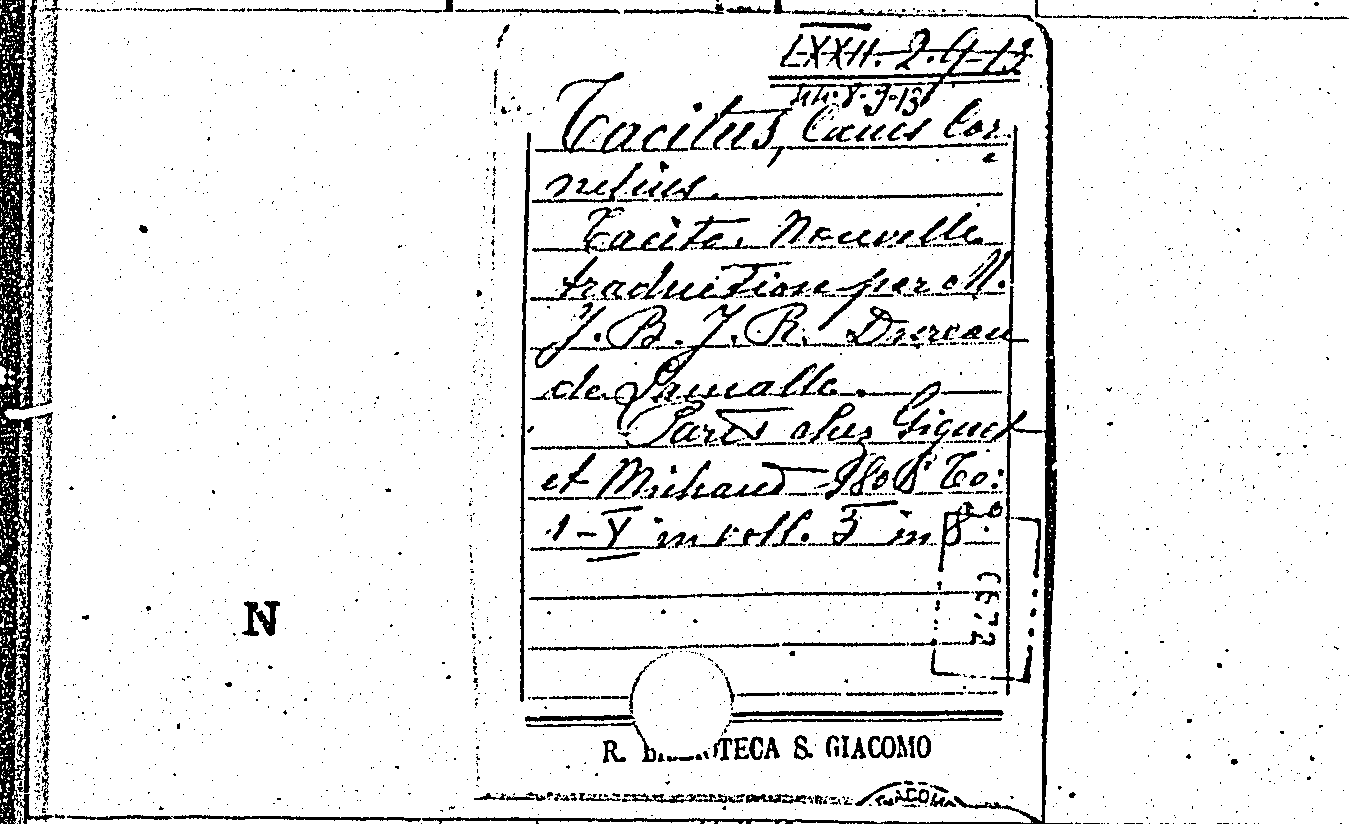 LXXII. 2. 9-13
44. 8. 9-13
Tacitus, Caius Cor
nelius.
Tacite. Nouvelle
traduction par M.
J. B. J. R. Dureau
de Lamalle.
Paris chez Giguet
et Michaud 1808 To:
1-V in voll. 5 in 8.º
N
R. BIBLIOTECA S. GIACOMO